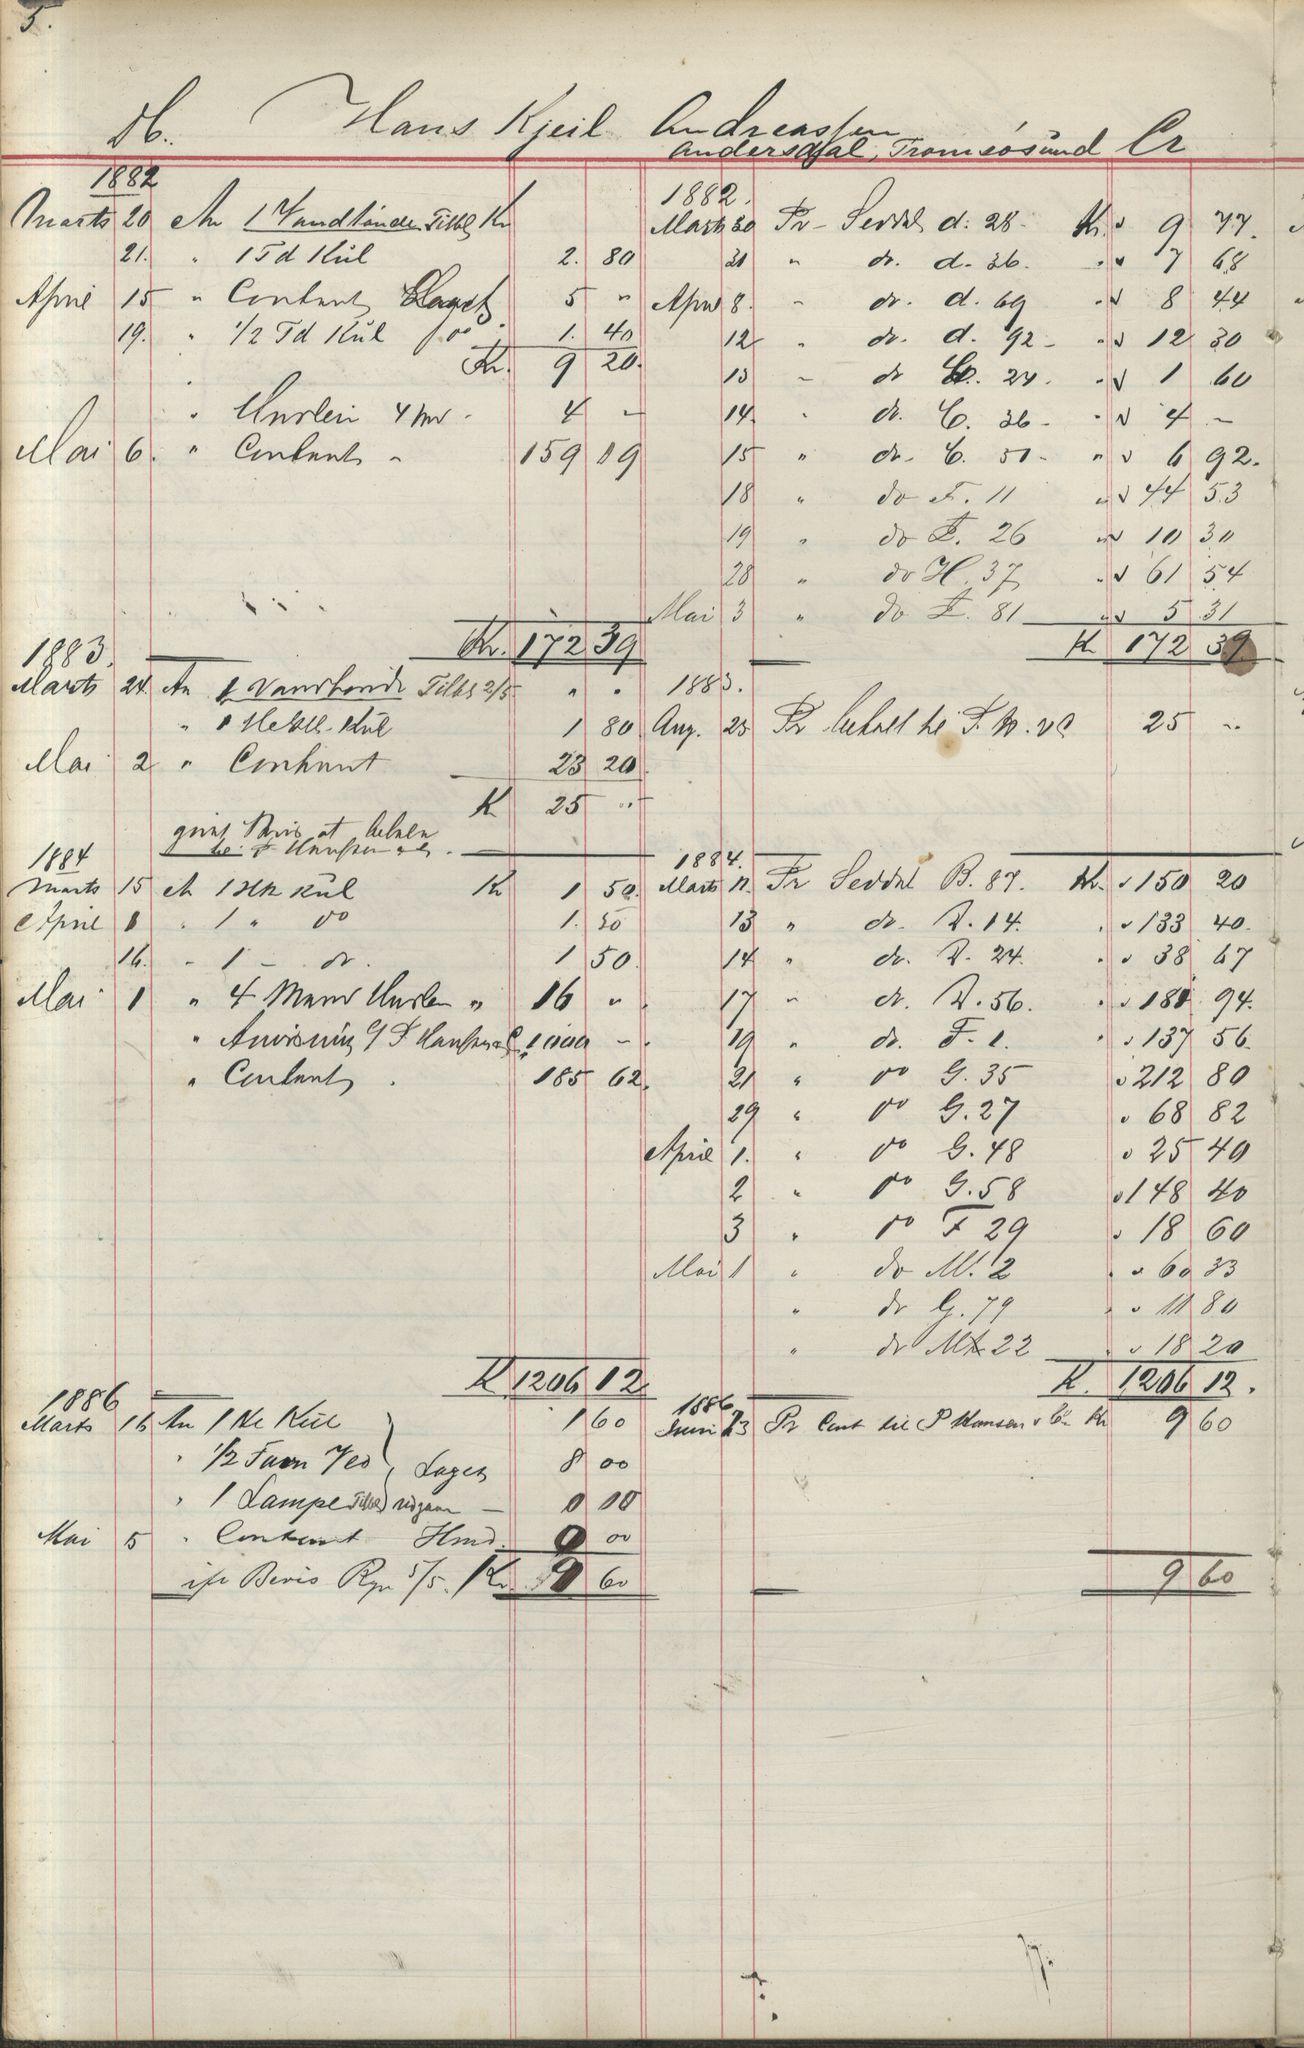 5.
Db. Hans Kjeil Andreassen Cr
Andersdal, Tromsøsund
1882
Marts 20 An 1 Vandtønde Tilb Kr
21. " 1 Td Kul 2. 80
April 15 " Contant 5 "
19. " 1/2 Td Kul do 1. 40
Kr. 9 20.
" Husleie 4 md - 4 -
Mai 6. " Contant " 159 19
Kr. 172 39
1883.
Marts 24 An 1 Vandtønde Tilb 2/5 " "
" 1 Kul 1 80
Mai 2 " Contant 23 20
K 25 "
givet Bevis at betale
til F Hansen & C.
1884
Marts 15 An 1 Hk Kul Kr 1 50.
April 1 " 1 " do 1. 50
16. " 1 - do. 1 50.
Mai 1 " 4 Mand Husleie " 16 "
" Anvisning F Hansen & C 1000 -
" Contant . 185 62.
K. 1206 12
1886
Marts 16 An 1 Kul 1 60
" 1/2 Favn Ved Laget 8 00
" 1 Lampe Tilb 0 00
Mai 5 " Contant 0 00
Bevis 5/5. Kr. 9 60
1882.
Marts 30 Pr - Seddel d. 28 - Kr. 9 77.
31 " do. d. 36. " 7 68
April 8. " do. d. 69 " 8 44
12 " do. d. 92 - " 12 30
13 - do C. 24 - " 1 60
14. " do. C. 36 - " 4 -
15 " do. C. 51 - " 6 92.
18 " do F. 11 " 44 53
19 " do F. 26 " 10 30
28 " do H. 37 " 61 54
Mai 3 " do F. 81 " 5 31
K 172 39
1883.
Aug. 23 Pr betalt til 25 "
1884.
Marts 12 Pr Seddel B. 87. Kr. 150 20
13 " do. D. 14. " 133 40.
14 " do. D. 24. " 38 67
17 " do. D. 56. " 181 94.
19 " do. F. 1. " 137 56.
21 " do G. 35 212 80
29 " do G. 27 68 82
April 1. " do G. 48 25 40
2 " do G. 58 148 40
3 " do F 29 18 60
Mai 1 " do M. 2 " 60 33
" do G. 79 " 11 80
" do M 22 " 18 20
K. 1206 12.
1886
Juni 23 Pr Cont til P Hansen & Co Kr 9 60
9 60